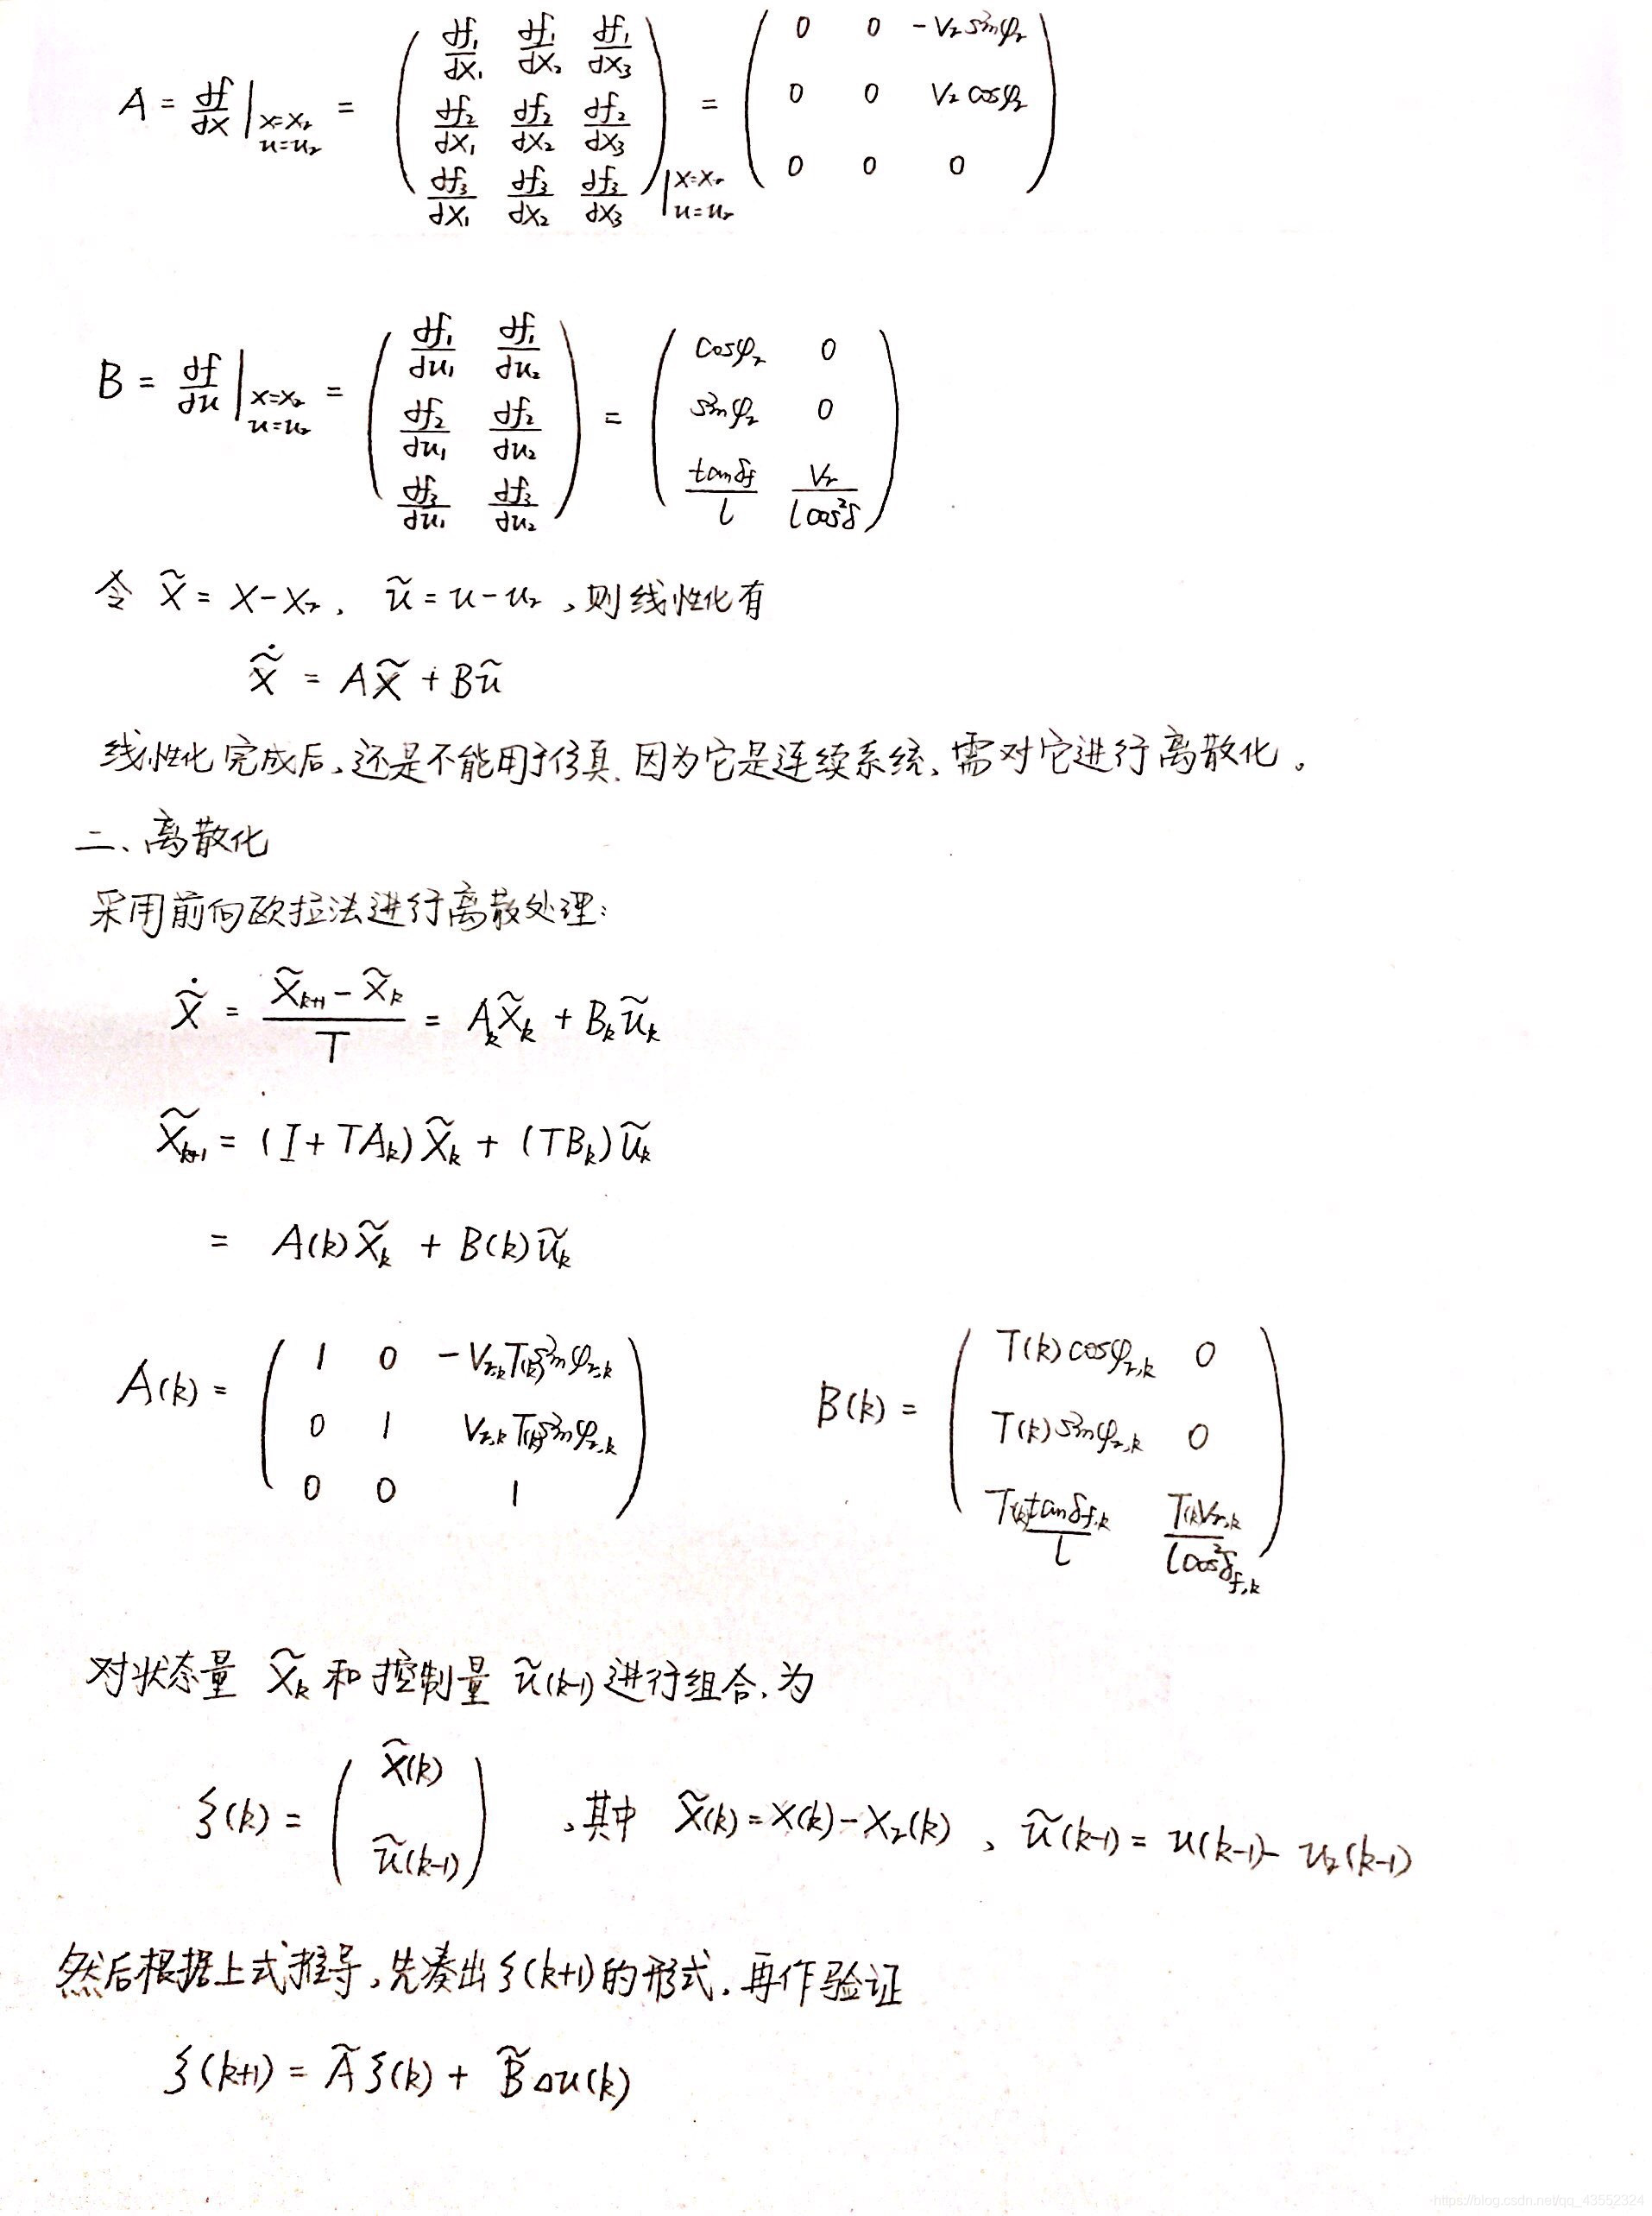 A = df/dx |x=xr u=ur = ( df₁/dx₁ df₁/dx₂ df₁/dx₃ ; df₂/dx₁ df₂/dx₂ df₂/dx₃ ; df₃/dx₁ df₃/dx₂ df₃/dx₃ ) |x=xr u=ur = ( 0 0 -Vr sinφr ; 0 0 Vr cosφr ; 0 0 0 )
B = df/du |x=xr u=ur = ( df₁/du₁ df₁/du₂ ; df₂/du₁ df₂/du₂ ; df₃/du₁ df₃/du₂ ) = ( cosφr 0 ; sinφr 0 ; tanδf/l Vr/(l cos²δ) )
令 x̃ = x-xr, ũ = u-ur, 则线性化有
x̃̇ = Ax̃ + Bũ
线性化完成后,还是不能用于仿真.因为它是连续系统,需对它进行离散化。
二、离散化
采用前向欧拉法进行离散处理:
x̃̇ = (x̃k+1 - x̃k)/T = Ak x̃k + Bk ũk
x̃k+1 = (I+TAk) x̃k + (TBk) ũk
= A(k) x̃k + B(k) ũk
A(k) = ( 1 0 -Vr,k T(k) sinφr,k ; 0 1 Vr,k T(k) sinφr,k ; 0 0 1 ) B(k) = ( T(k) cosφr,k 0 ; T(k) sinφr,k 0 ; T(k) tanδf,k/l T(k)Vr,k/(l cos²δf,k) )
对状态量 x̃k 和控制量 ũ(k-1) 进行组合,为
ξ(k) = ( x̃(k) ; ũ(k-1) ) ,其中 x̃(k) = x(k) - xr(k) , ũ(k-1) = u(k-1) - ur(k-1)
然后根据上式推导,先凑出ξ(k+1)的形式,再作验证
ξ(k+1) = Ãξ(k) + B̃Δu(k)
https://blog.csdn.net/qq_43552324